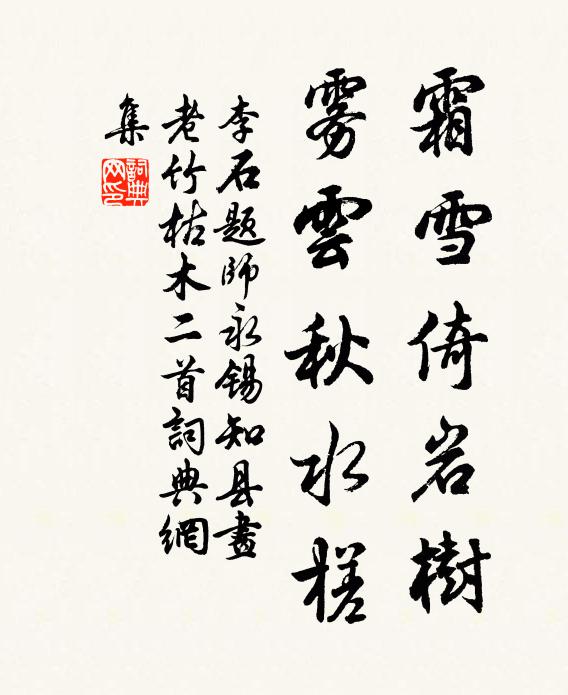 霜雪倚岩樹
雾雲秋水槎
李石题師永锡知县畫
老竹枯木二首詞典網
集
詞典
网印